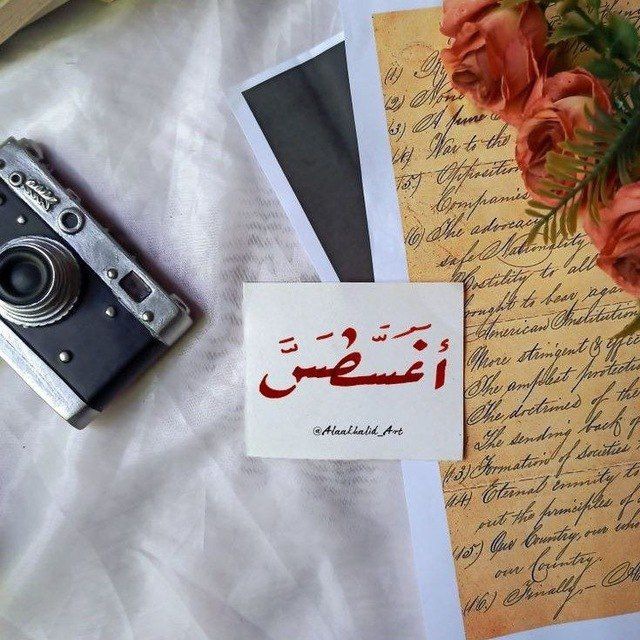 (1)
(2) None
(3) A pure
(4) War to the
(5) Opposition
Companies
(6) The advocacy
safe Nationality
Hostility to all
ought to bear again
American Institutions
More stringent & effec
The amplest protection
The doctrines of the
The sending back of
(13) Formation of societies
(14) Eternal enmity to
out the principles of
(15) Our Country, our wh
our Country.
(16) Finally,-
أغسطس
@Alaakhalid_Art